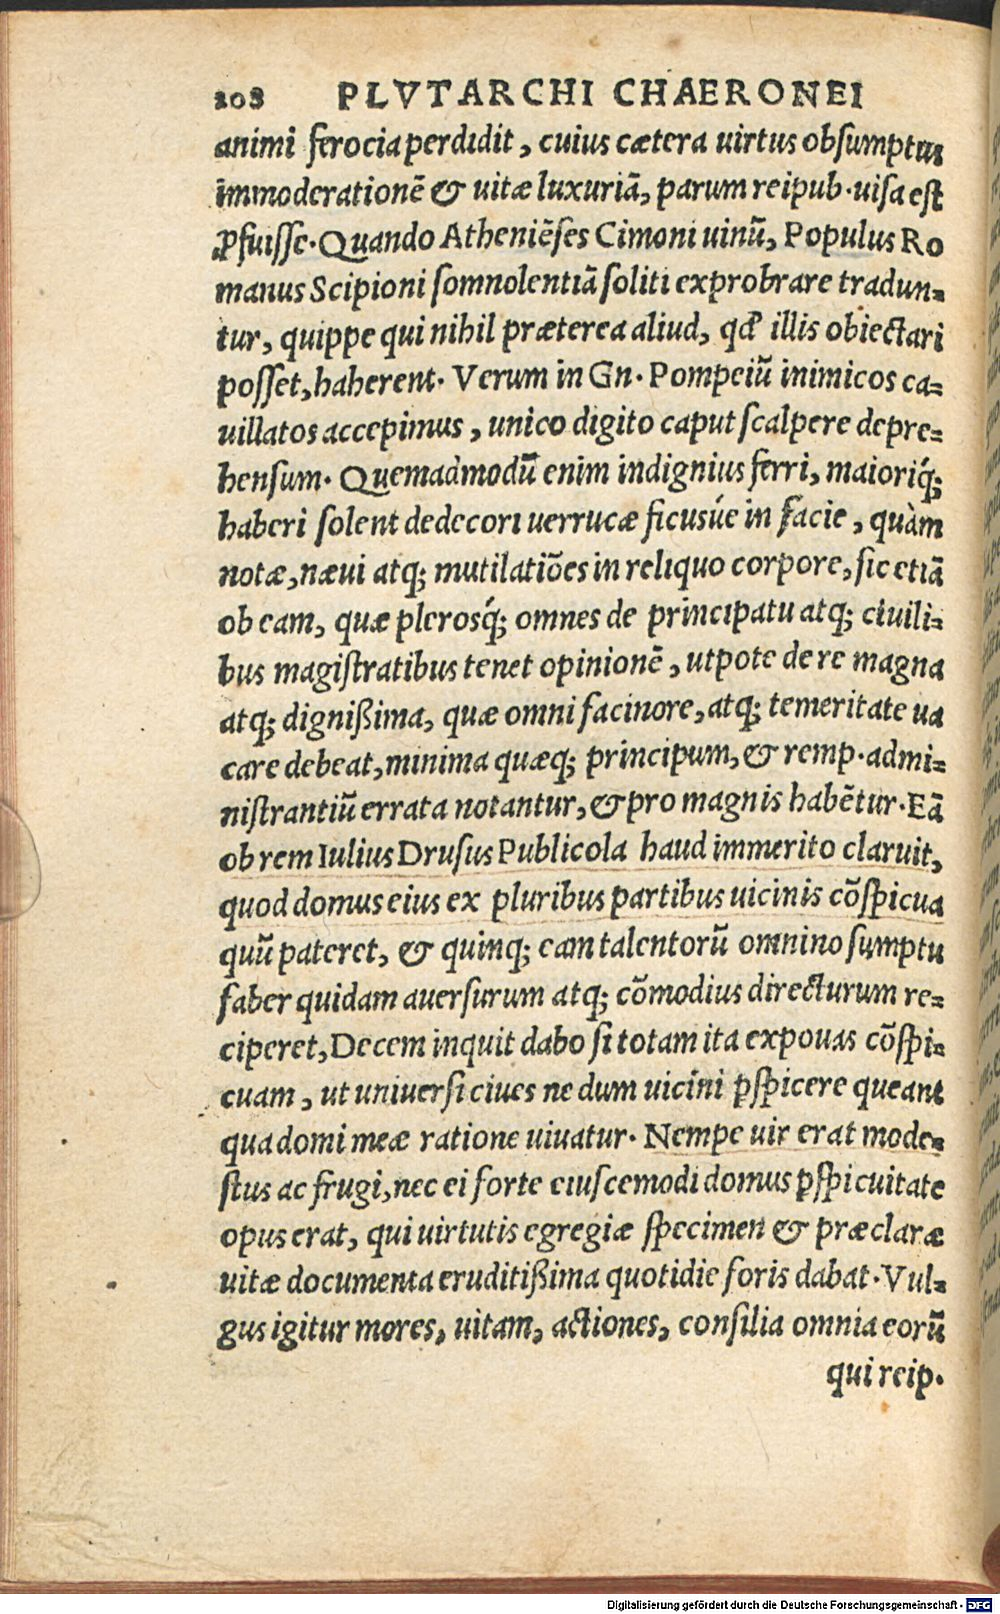 208 PLVTARCHI CHAERONEI
animi ferocia perdidit, cuius cætera uirtus ob sumptuũ
immoderationē & uitæ luxuriā, parum reipub. uisa est
ꝓfuisse. Quando Atheniēses Cimoni uinũ, Populus Ro
manus Scipioni somnolentiā soliti exprobrare tradun⸗
tur, quippe qui nihil præterea aliud, qđ illis obiectari
posset, haherent. Verum in Gn. Pompeiũ inimicos ca⸗
uillatos accepimus, unico digito caput scalpere depre⸗
hensum. Quemadmodũ enim indignius ferri, maioriq́;
haberi solent dedecori uerrucæ ficusúe in facie, quàm
notæ, næui atq; mutilatiões in reliquo corpore, sic etiā
ob eam, quæ plerosq́; omnes de principatu atq; ciuili⸗
bus magistratibus tenet opinionē, utpote de re magna
atq; dignißima, quæ omni facinore, atq; temeritate ua
care debeat, minima quæq; principum, & remp. admi⸗
nistrantiũ errata notantur, & pro magnis habētur. Eā
ob rem Iulius Drusus Publicola haud immerito claruit,
quod domus eius ex pluribus partibus uicinis cōspicua
quũ pateret, & quinq; eam talentorũ omnino sumptu
faber quidam auersurum atq; cōmodius directurum re⸗
ciperet, Decem inquit dabo si totam ita expouas cōspi⸗
cuam, ut uniuersi ciues ne dum uicini ꝑspicere queant
qua domi meæ ratione uiuatur. Nempe uir erat mode⸗
stus ac frugi, nec ei forte eiuscemodi domus ꝑspicuitate
opus erat, qui uirtutis egregiæ specimen & præclaræ
uitæ documenta eruditißima quotidie foris dabat. Vul⸗
gus igitur mores, uitam, actiones, consilia omnia eorũ
qui reip.
Digitalisierung gefördert durch die Deutsche Forschungsgemeinschaft - DFG